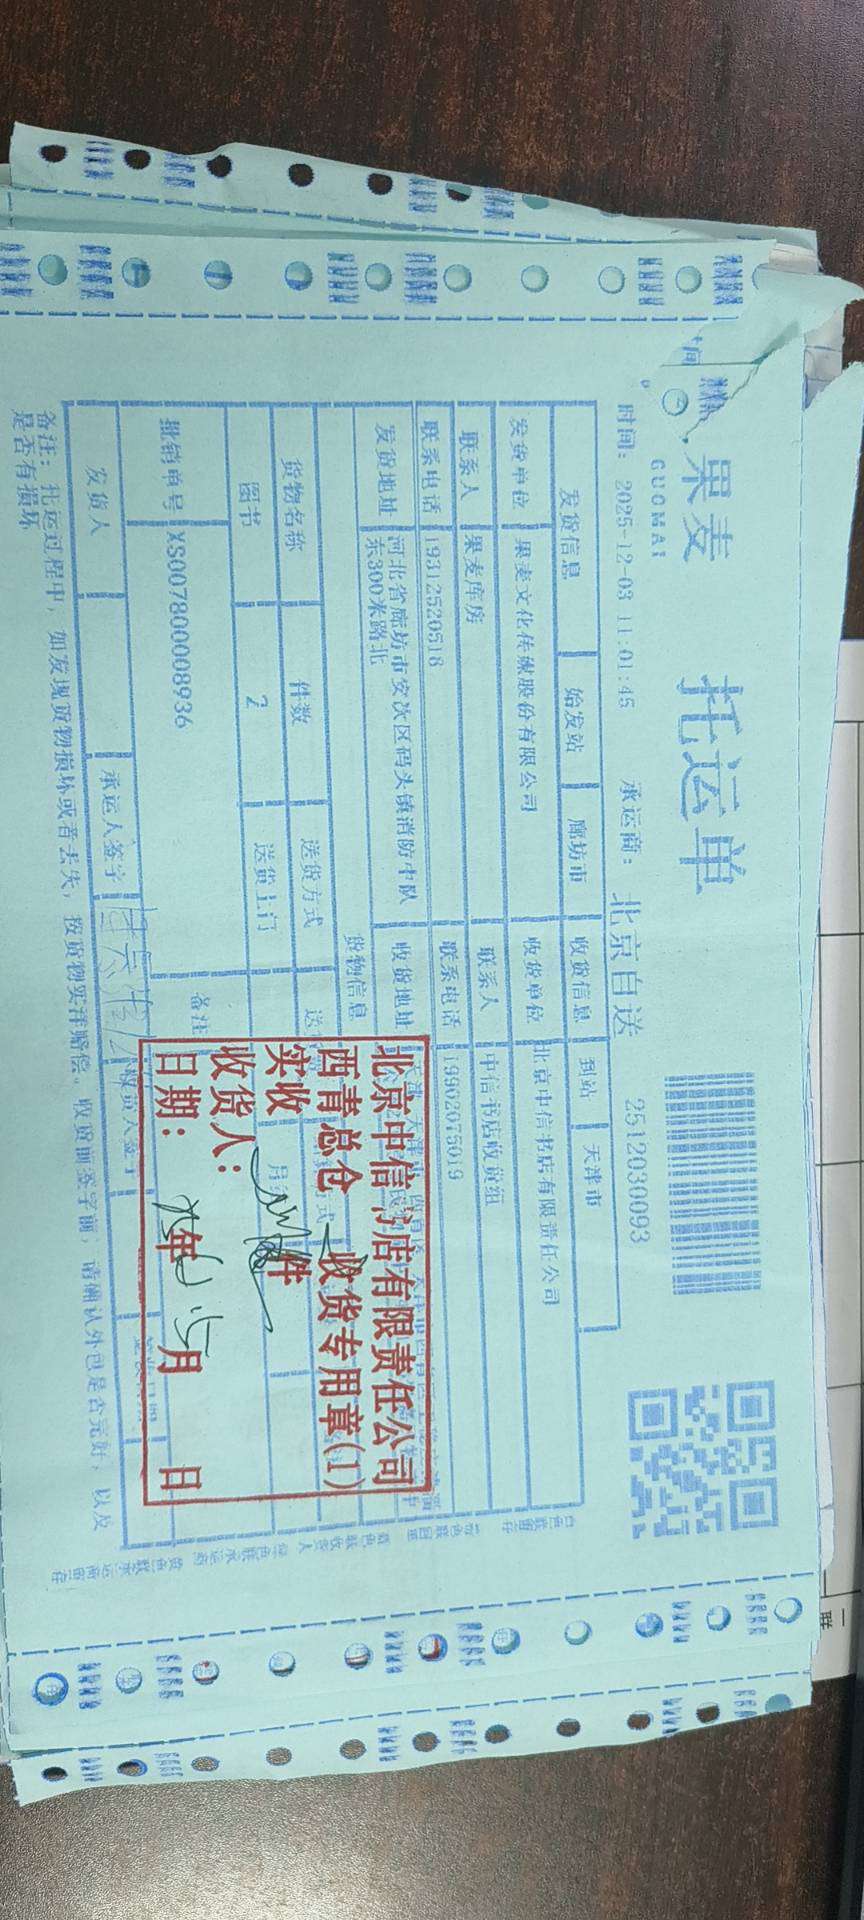 果麦
GUOMAI
托运单
2512030093
时间: 2025-12-03 11:01:45 承运商: 北京自送
发货信息 始发站 廊坊市 收货信息 到站 天津市
发货单位 果麦文化传媒股份有限公司 收货单位 北京中信书店有限责任公司
联系人 果麦库房 联系人 中信书店收货组
联系电话 19312520518 联系电话 19902075019
发货地址 河北省廊坊市安次区码头镇消防中队
东300米路北
收货地址
货物信息
货物名称 件数 送货方式
图书 2 送货上门
批销单号 XS007800008936 备注
发货人 承运人签字 收货人签字
备注: 托运过程中, 如发现货物损坏或者丢失, 按货物实洋赔偿。收货前签字前, 请确认外包是否完好, 以及
是否有损坏
北京中信书店有限责任公司
西青总仓 收货专用章(1)
实收 件
收货人:
日期: 年 月 日
联